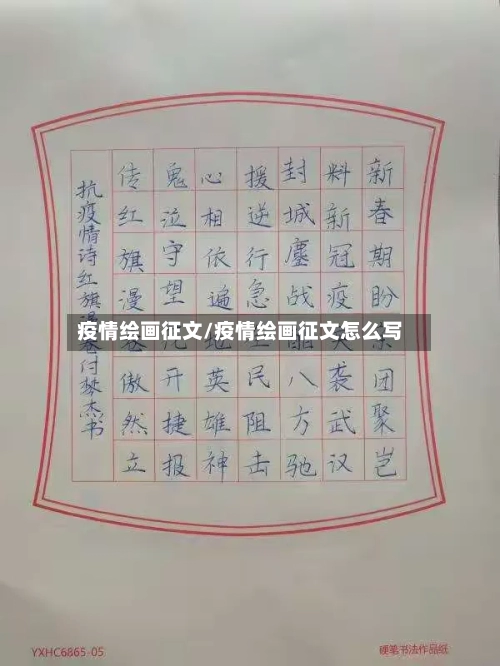 新春期盼团聚岂
料新冠疫袭武汉
封城鏖战八方驰
援逆行急民阻击
心相依遍英雄神
鬼泣守望开捷报
传红旗漫傲然立
抗疫情诗红旗卷付梦杰书
疫情绘画征文/疫情绘画征文怎么写
YXHC6865-05
硬笔书法作品纸